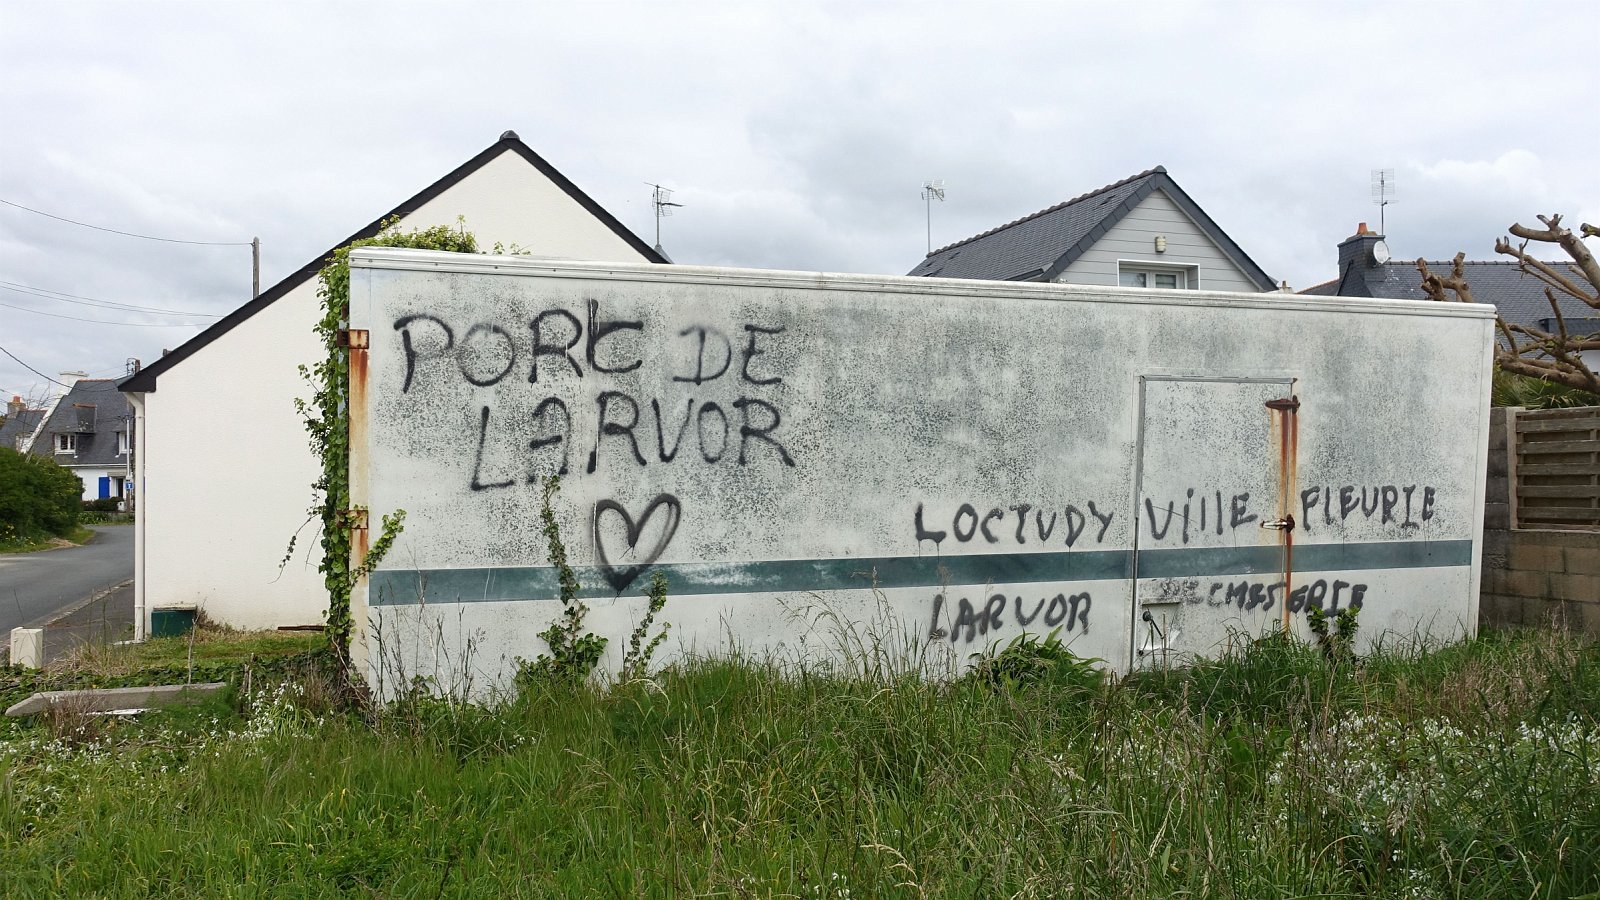 PORT DE
LARVOR
LOCTUDY VILLE FLEURIE
LARVOR